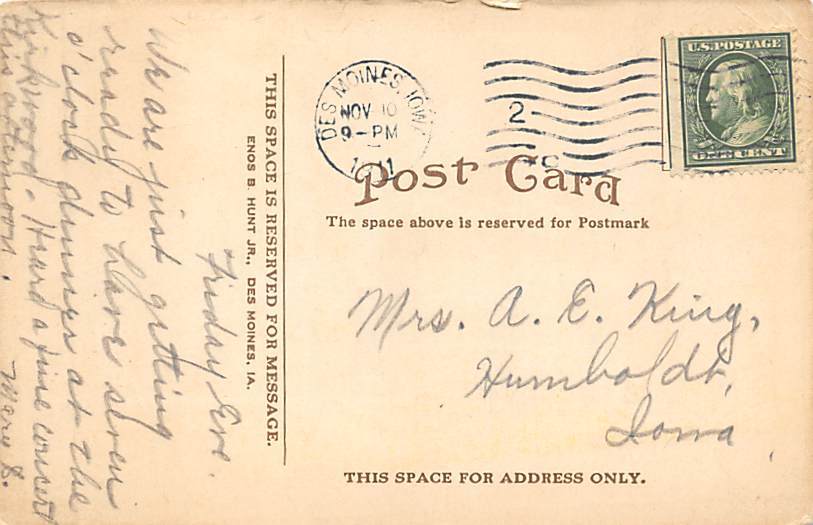 U.S. POSTAGE
ONE CENT
DES MOINES, IOWA
NOV 10
9-PM
1911
2
Post Card
The space above is reserved for Postmark
Mrs. A. E. King,
Humboldt,
Iowa
THIS SPACE FOR ADDRESS ONLY.
THIS SPACE IS RESERVED FOR MESSAGE.
ENOS B. HUNT JR., DES MOINES, IA.
Friday Eve.
We are just getting
ready to have seven
o'clock dinner at the
Kirkwood. Heard a fine concert
this afternoon.